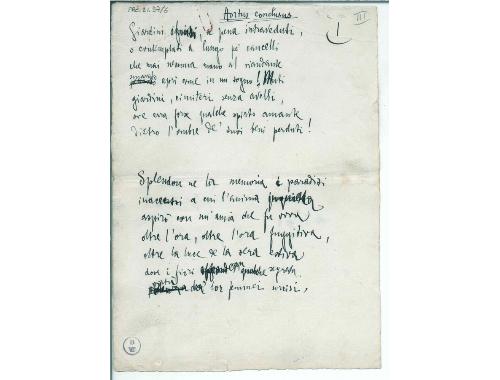 Hortus conclusus
III
Giardini chiusi, a pena intraveduti,
o contemplati a lungo pe' cancelli
che mai nessuna mano al viandante
smarrito aprì come in un sogno! Muti
giardini, cimiteri senza avelli,
ove erra forse qualche spirto amante
dietro l'ombre de' suoi beni perduti!
Splendon ne la memoria i paradisi
inaccessi a cui l'anima inquieta
aspirò con un'ansia che fu viva
oltre l'ora, oltre l'ora fuggitiva,
oltre la luce de la sera estiva
dove i fiori effondean qualche segreta
virtù da' lor feminei sorrisi,